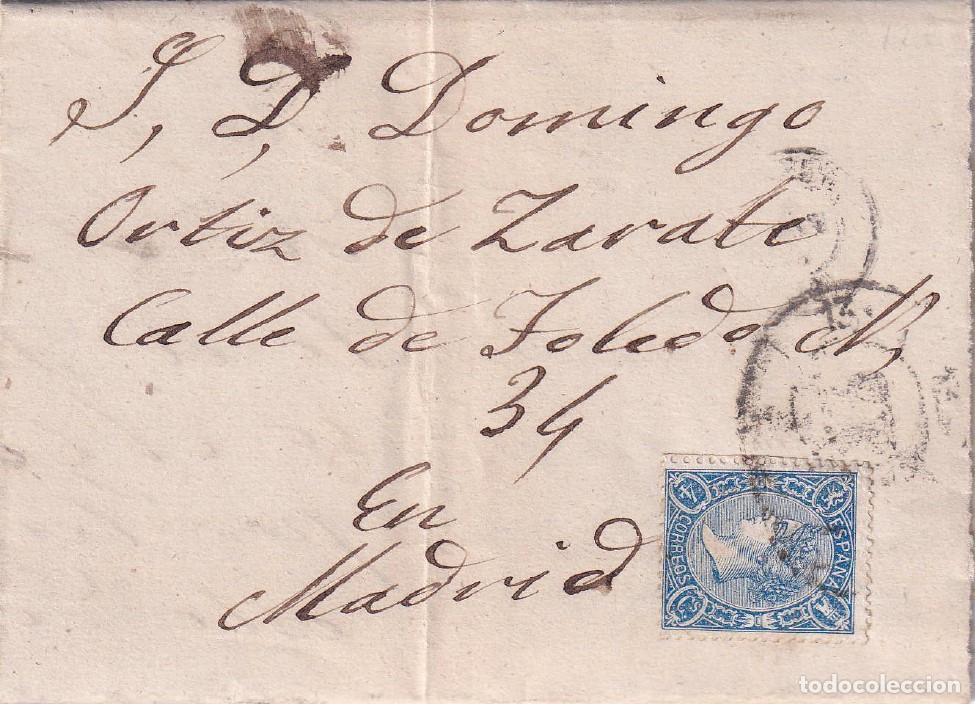 S, D, Domingo
Ortiz de Zarate
Calle de Toledo N,
34
En
Madrid
ESPAÑA
CORREOS
4 CS
todocoleccion.net